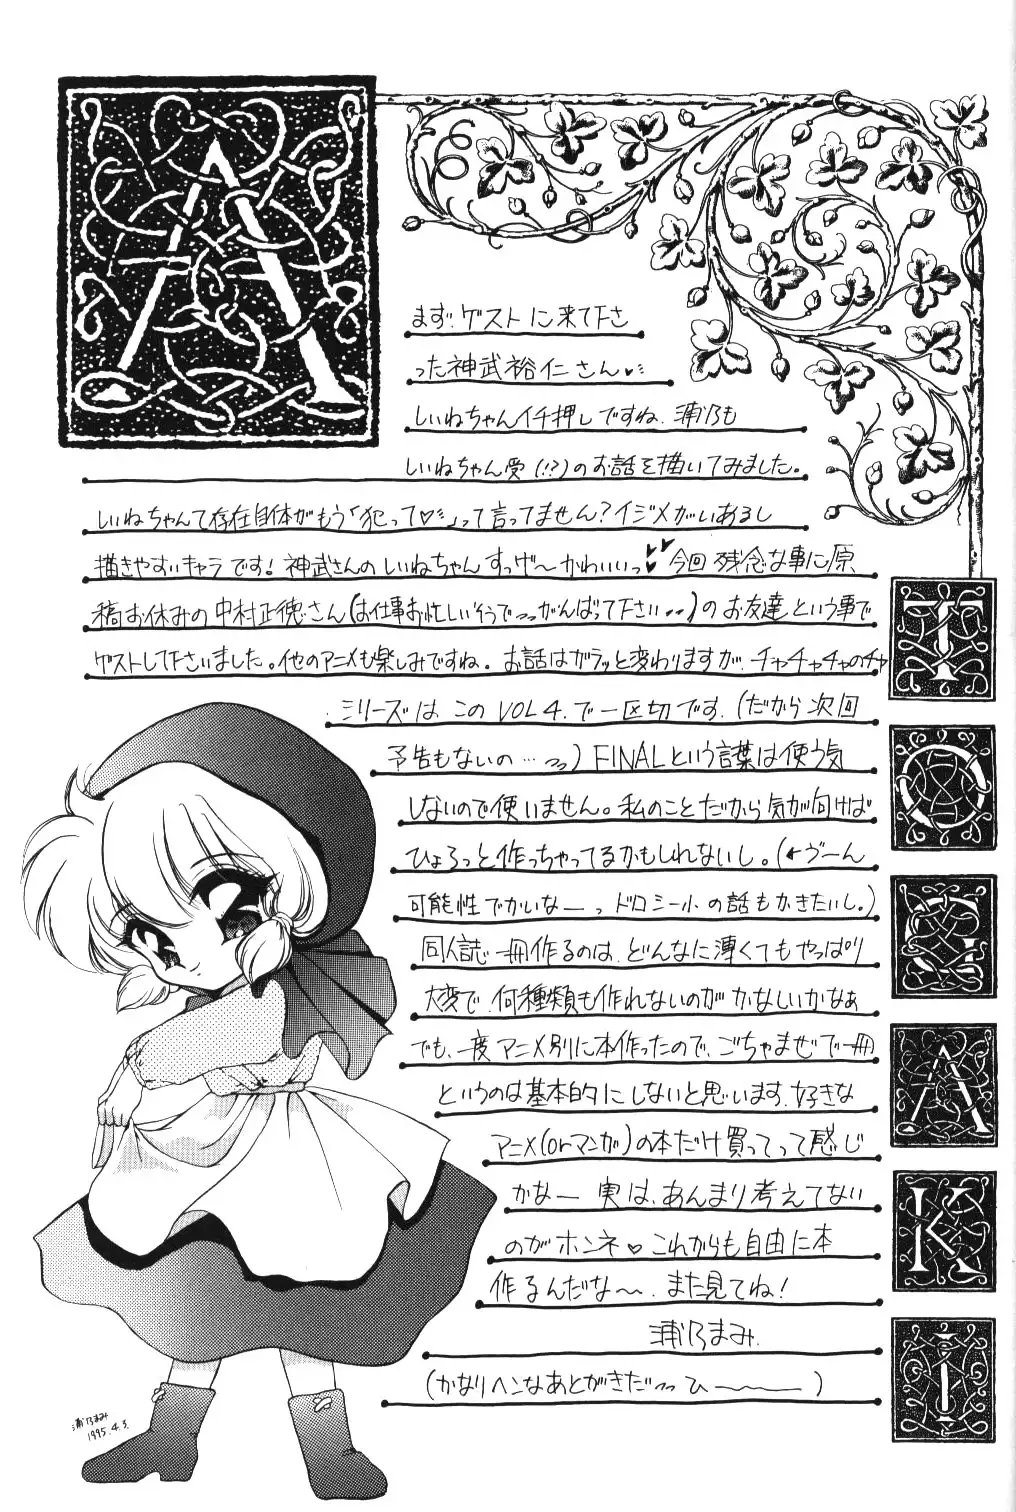 A
まず、ゲストに来て下さ
った神武裕仁さん♥
しいねちゃんイチ押しですね、浦乃も
描きやすいキャラです！神武さんのしいねちゃんすっげ〜かわいいっ♥♥今回残念な事に原
稿お休みの中村正徳さん(お仕事お忙しいそうで…がんばって下さい…)のお友達という事で
ゲストして下さいました。他のアニメも楽しみですね。お話はガラッと変わりますが、チャチャチャのチャ
シリーズはこのVOL4.で一区切です。(だから次回
予告もないの…)FINALという言葉は使う気
しないので使いません。私のことだから気が向けば
ひょろっと作っちゃってるかもしれないし。(←ゔーん
可能性でかいなーっドロシー小の話もかきたいし。)
同人誌一冊作るのは、どんなに薄くてもやっぱり
大変で、何種類も作れないのがかなしいかなぁ
でも、一度アニメ別に本作ったので、ごちゃまぜで一冊
というのは基本的にしないと思います。好きな
アニメ(orマンガ)の本だけ買ってって感じ
かなー 実は、あんまり考えてない
のがホンネ♡これからも自由に本
作るんだな〜、また見てね！
浦乃まみ.
(かなりヘンなあとがきだ…ひ〜)
T
O
G
A
K
I
浦乃まみ
1995.4.3.